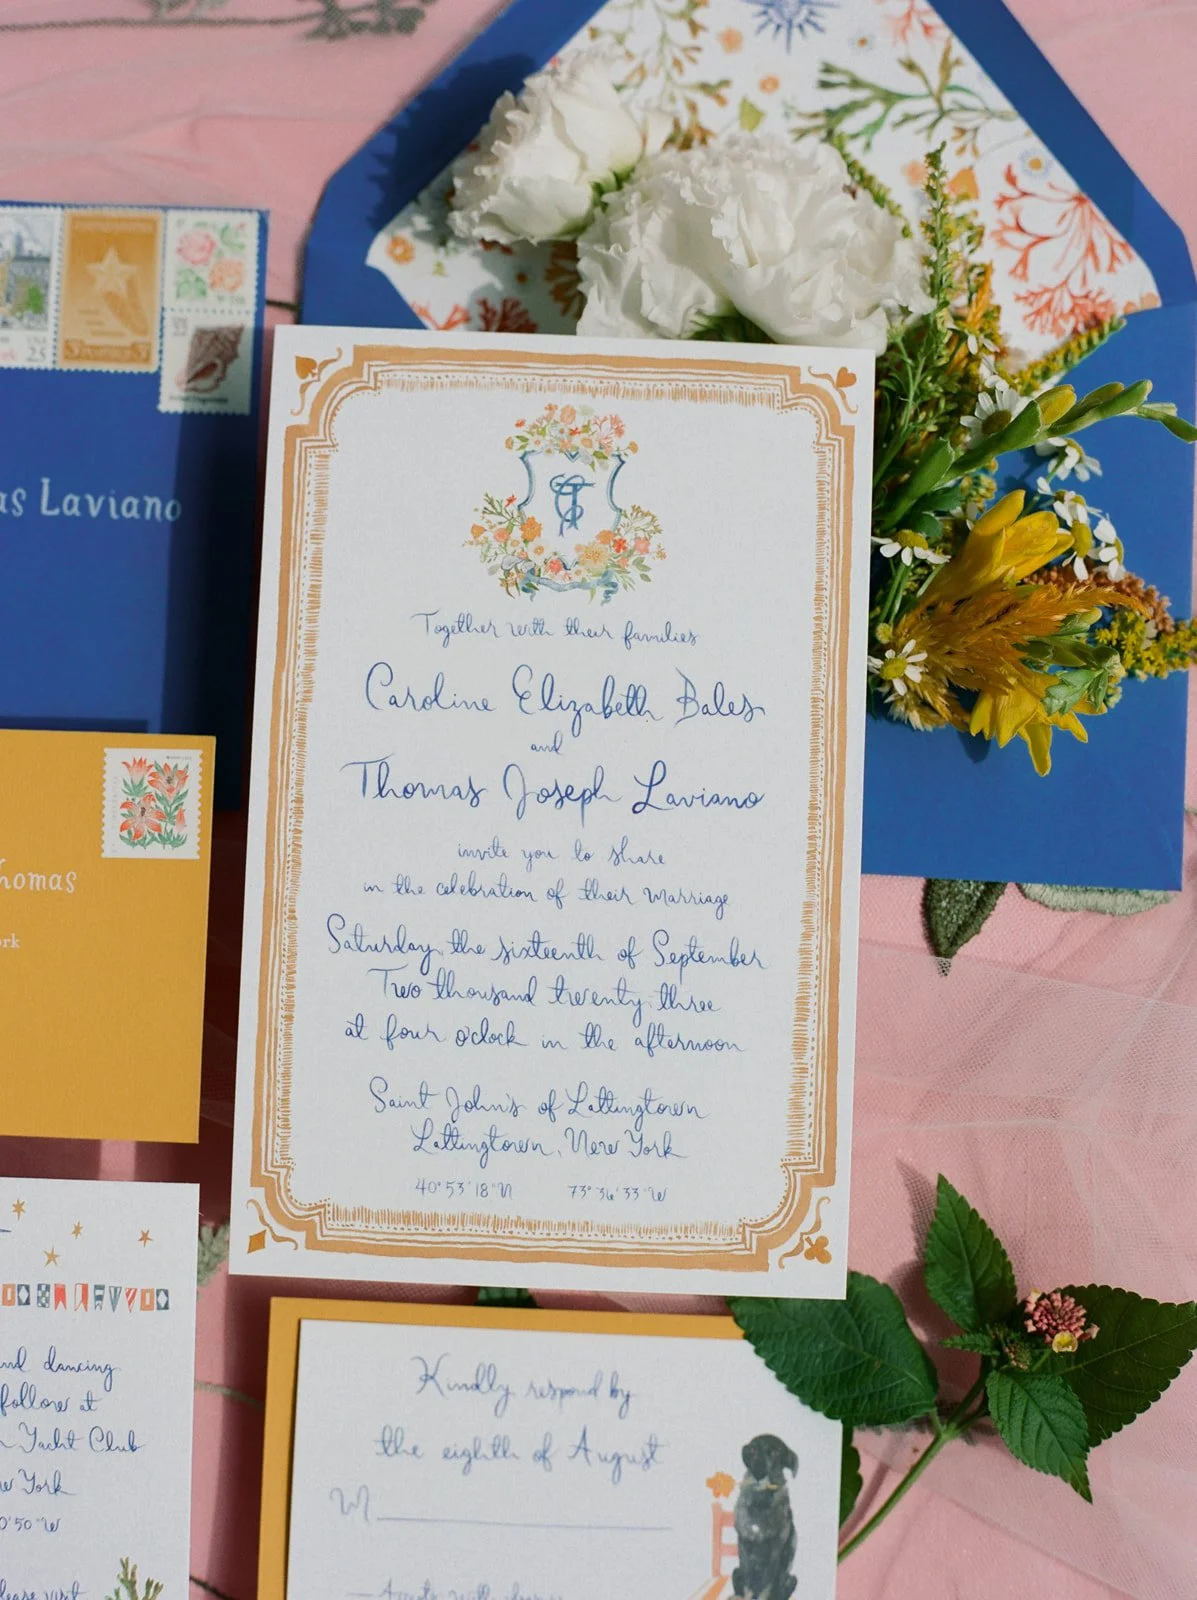 USA
25
as Laviano
Together with their families
Caroline Elizabeth Bales
and
Thomas Joseph Laviano
invite you to share
in the celebration of their marriage
Saturday, the sixteenth of September
Two thousand twenty three
at four o'clock in the afternoon
Saint John's of Lattingtown
Lattingtown, New York
40° 53' 18" N 73° 36' 33" W
homas
ork
nd dancing
follow at
Yacht Club
York
50" W
visit
Kindly respond by
the eighth of August
M